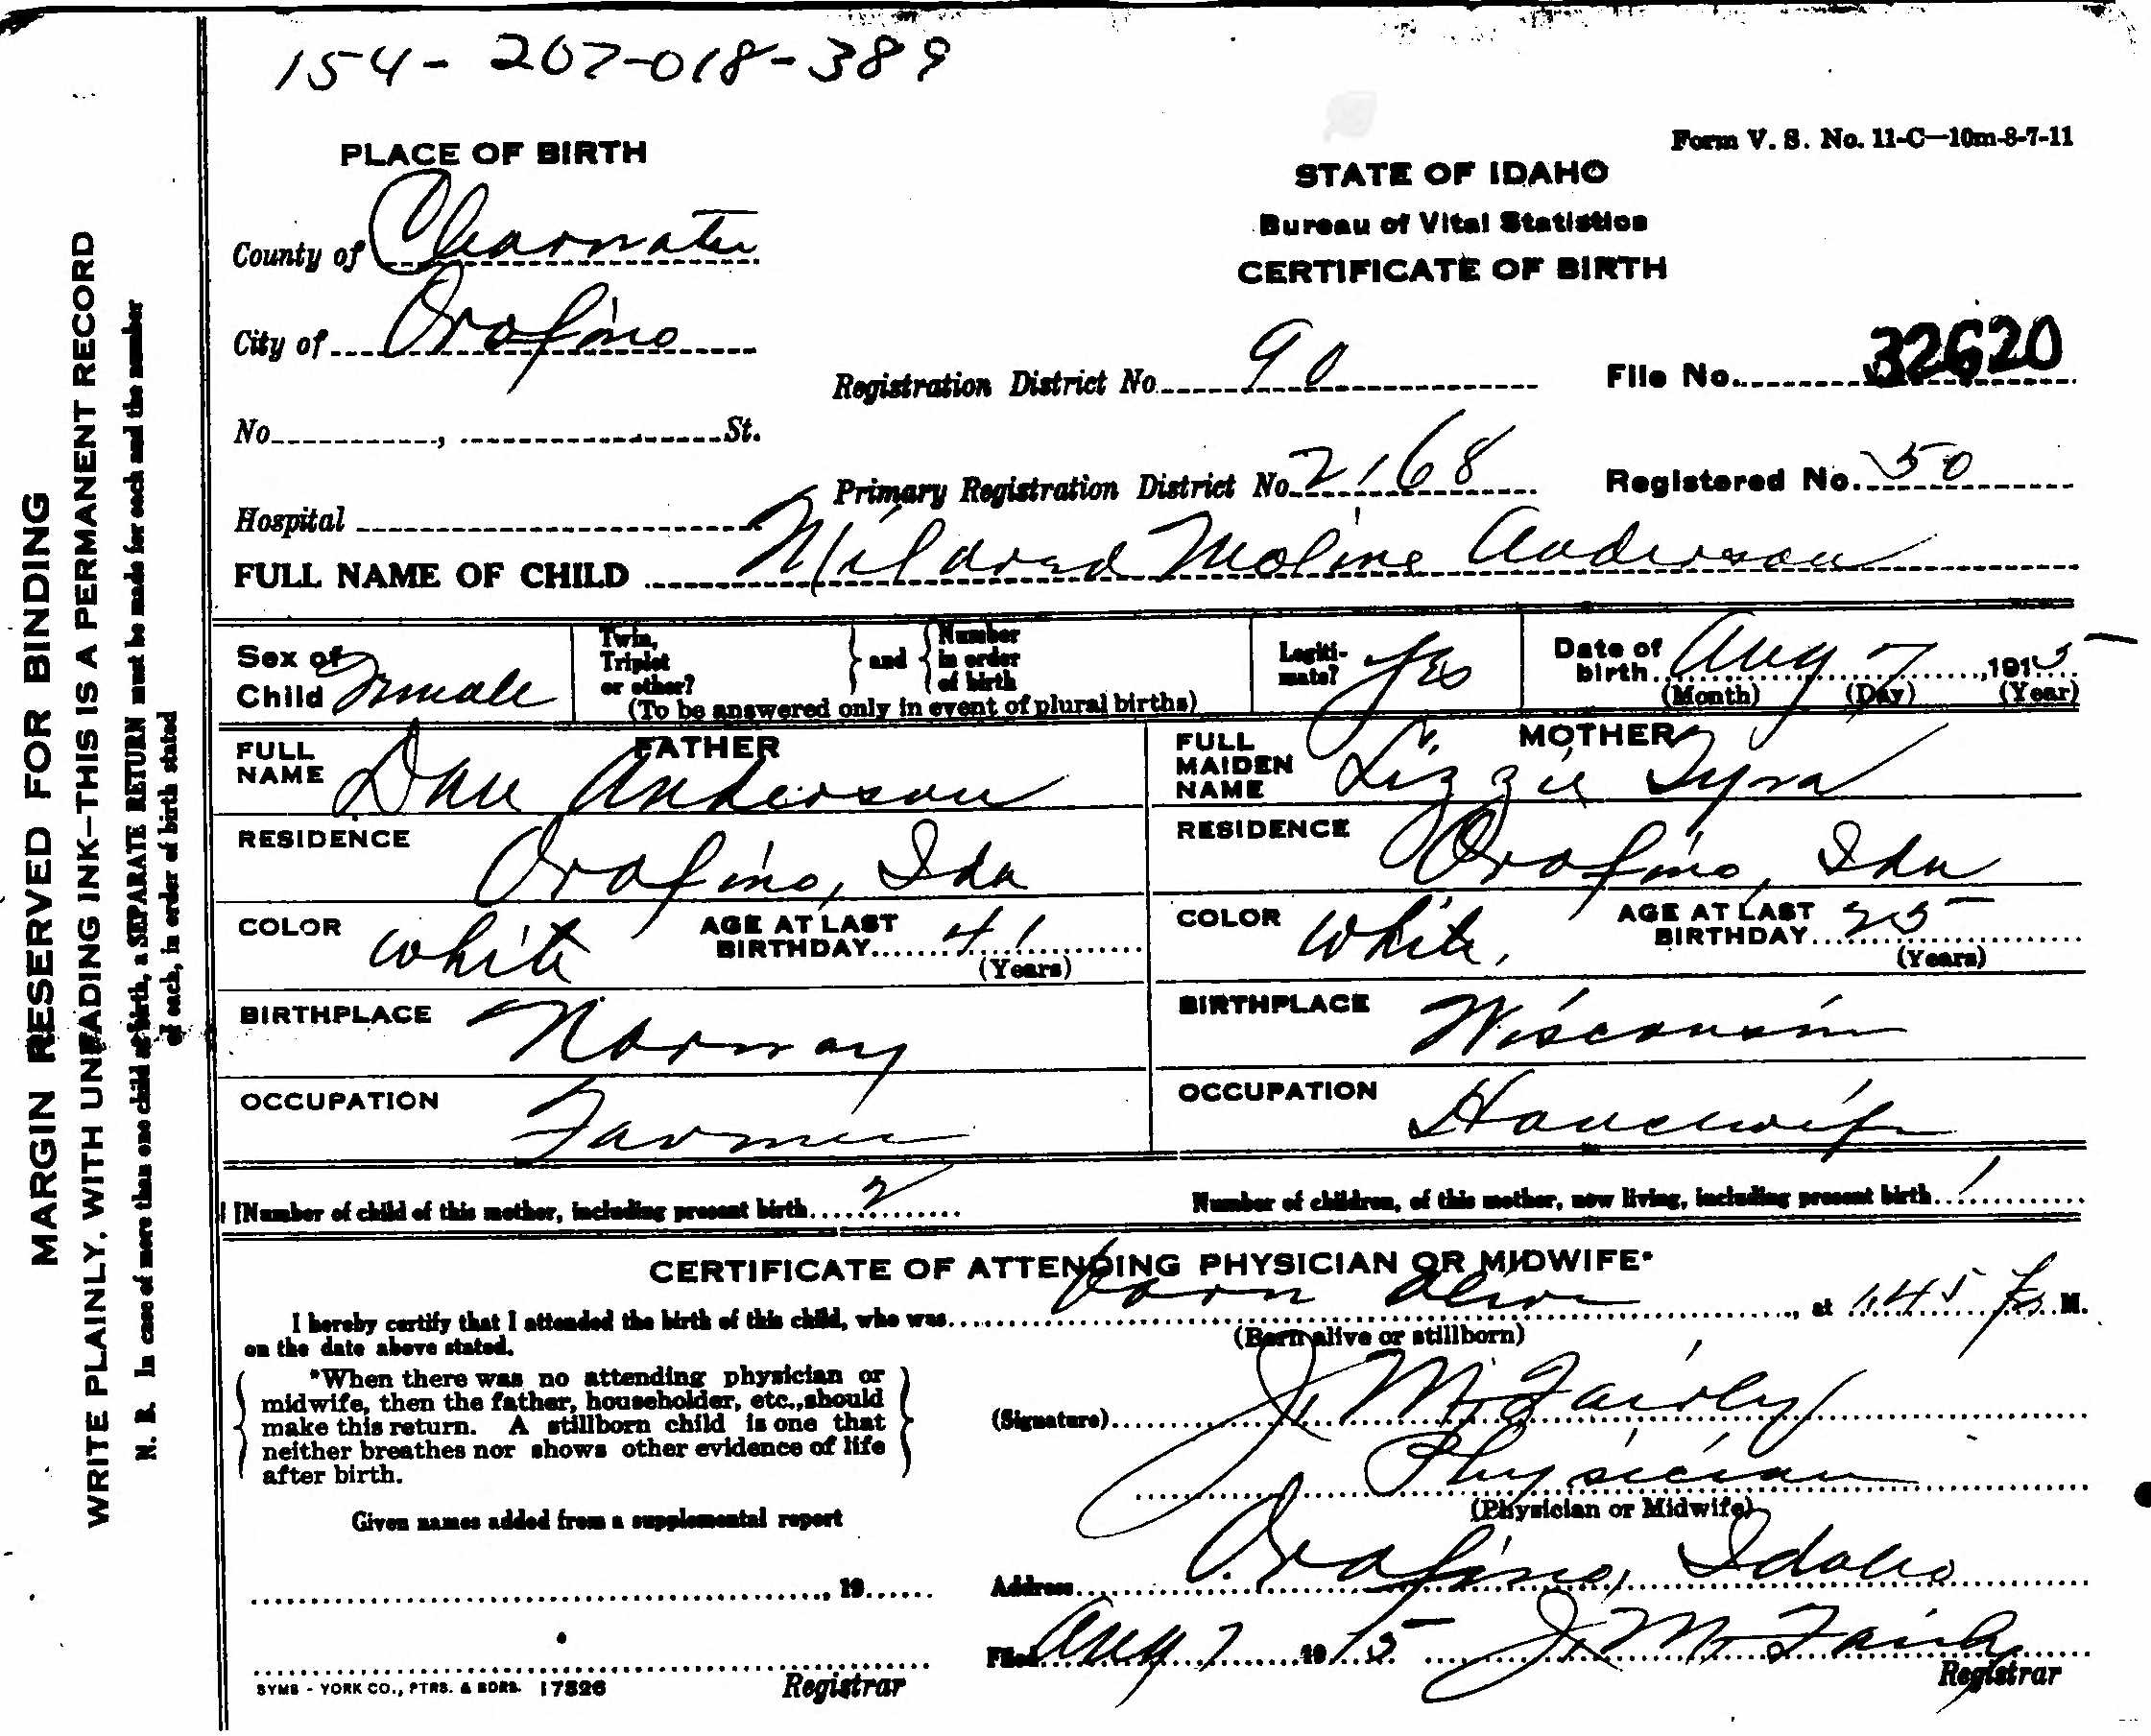 154-207-018-389
Form V. S. No. 11-C—10m-8-7-11
PLACE OF BIRTH
STATE OF IDAHO
Bureau of Vital Statistics
CERTIFICATE OF BIRTH
County of Clearwater
City of Orofino
Registration District No. 90
File No. 32620
No. , St.
Primary Registration District No. 2168
Registered No. 50
Hospital
FULL NAME OF CHILD Mildred Moline Anderson
Sex of Child Female
Twin, Triplet or other? } and { Number in order of birth
(To be answered only in event of plural births)
Legitimate? Yes
Date of birth Aug 7, 1915
(Month) (Day) (Year)
FATHER
FULL NAME Dan Anderson
MOTHER
FULL MAIDEN NAME Lizzie Tyra
RESIDENCE Orofino, Ida
RESIDENCE Orofino, Ida
COLOR White AGE AT LAST BIRTHDAY 41 (Years)
COLOR White, AGE AT LAST BIRTHDAY 25 (Years)
BIRTHPLACE Norway
BIRTHPLACE Wisconsin
OCCUPATION Farmer
OCCUPATION Housewife
Number of child of this mother, including present birth 2
Number of children, of this mother, now living, including present birth 1
CERTIFICATE OF ATTENDING PHYSICIAN OR MIDWIFE*
I hereby certify that I attended the birth of this child, who was born alive, at 1.45 P. M.
on the date above stated.
(Born alive or stillborn)
*When there was no attending physician or
midwife, then the father, householder, etc.,should
make this return. A stillborn child is one that
neither breathes nor shows other evidence of life
after birth.
(Signature) J. M. Fairly
Physician
(Physician or Midwife)
Given names added from a supplemental report
, 19
Address Orofino, Idaho
Filed Aug 7 1915 J. M. Fairly
Registrar
Registrar
SYMS - YORK CO., PTRS. & BDRS. 17526
MARGIN RESERVED FOR BINDING
WRITE PLAINLY, WITH UNFADING INK—THIS IS A PERMANENT RECORD
N. B. In case of more than one child at birth, a SEPARATE RETURN must be made for each and the number
of each, in order of birth stated